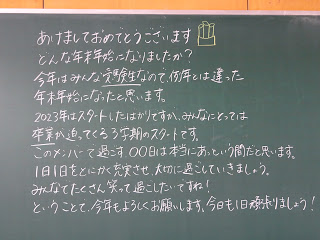 あけましておめでとうございます
どんな年末年始になりましたか?
今年はみんな受験生なので、例年とは違った
年末年始になったと思います。
2023年はスタートしたばかりですが、みんなにとっては
卒業が迫ってくる3学期のスタートです。
このメンバーで過ごす〇〇日は本当にあっという間だと思います。
1日1日をとにかく充実させ、大切に過ごしていきましょう。
みんなでたくさん笑って過ごしたいですね!
ということで、今年もよろしくお願いします。今日も1日頑張りましょう!